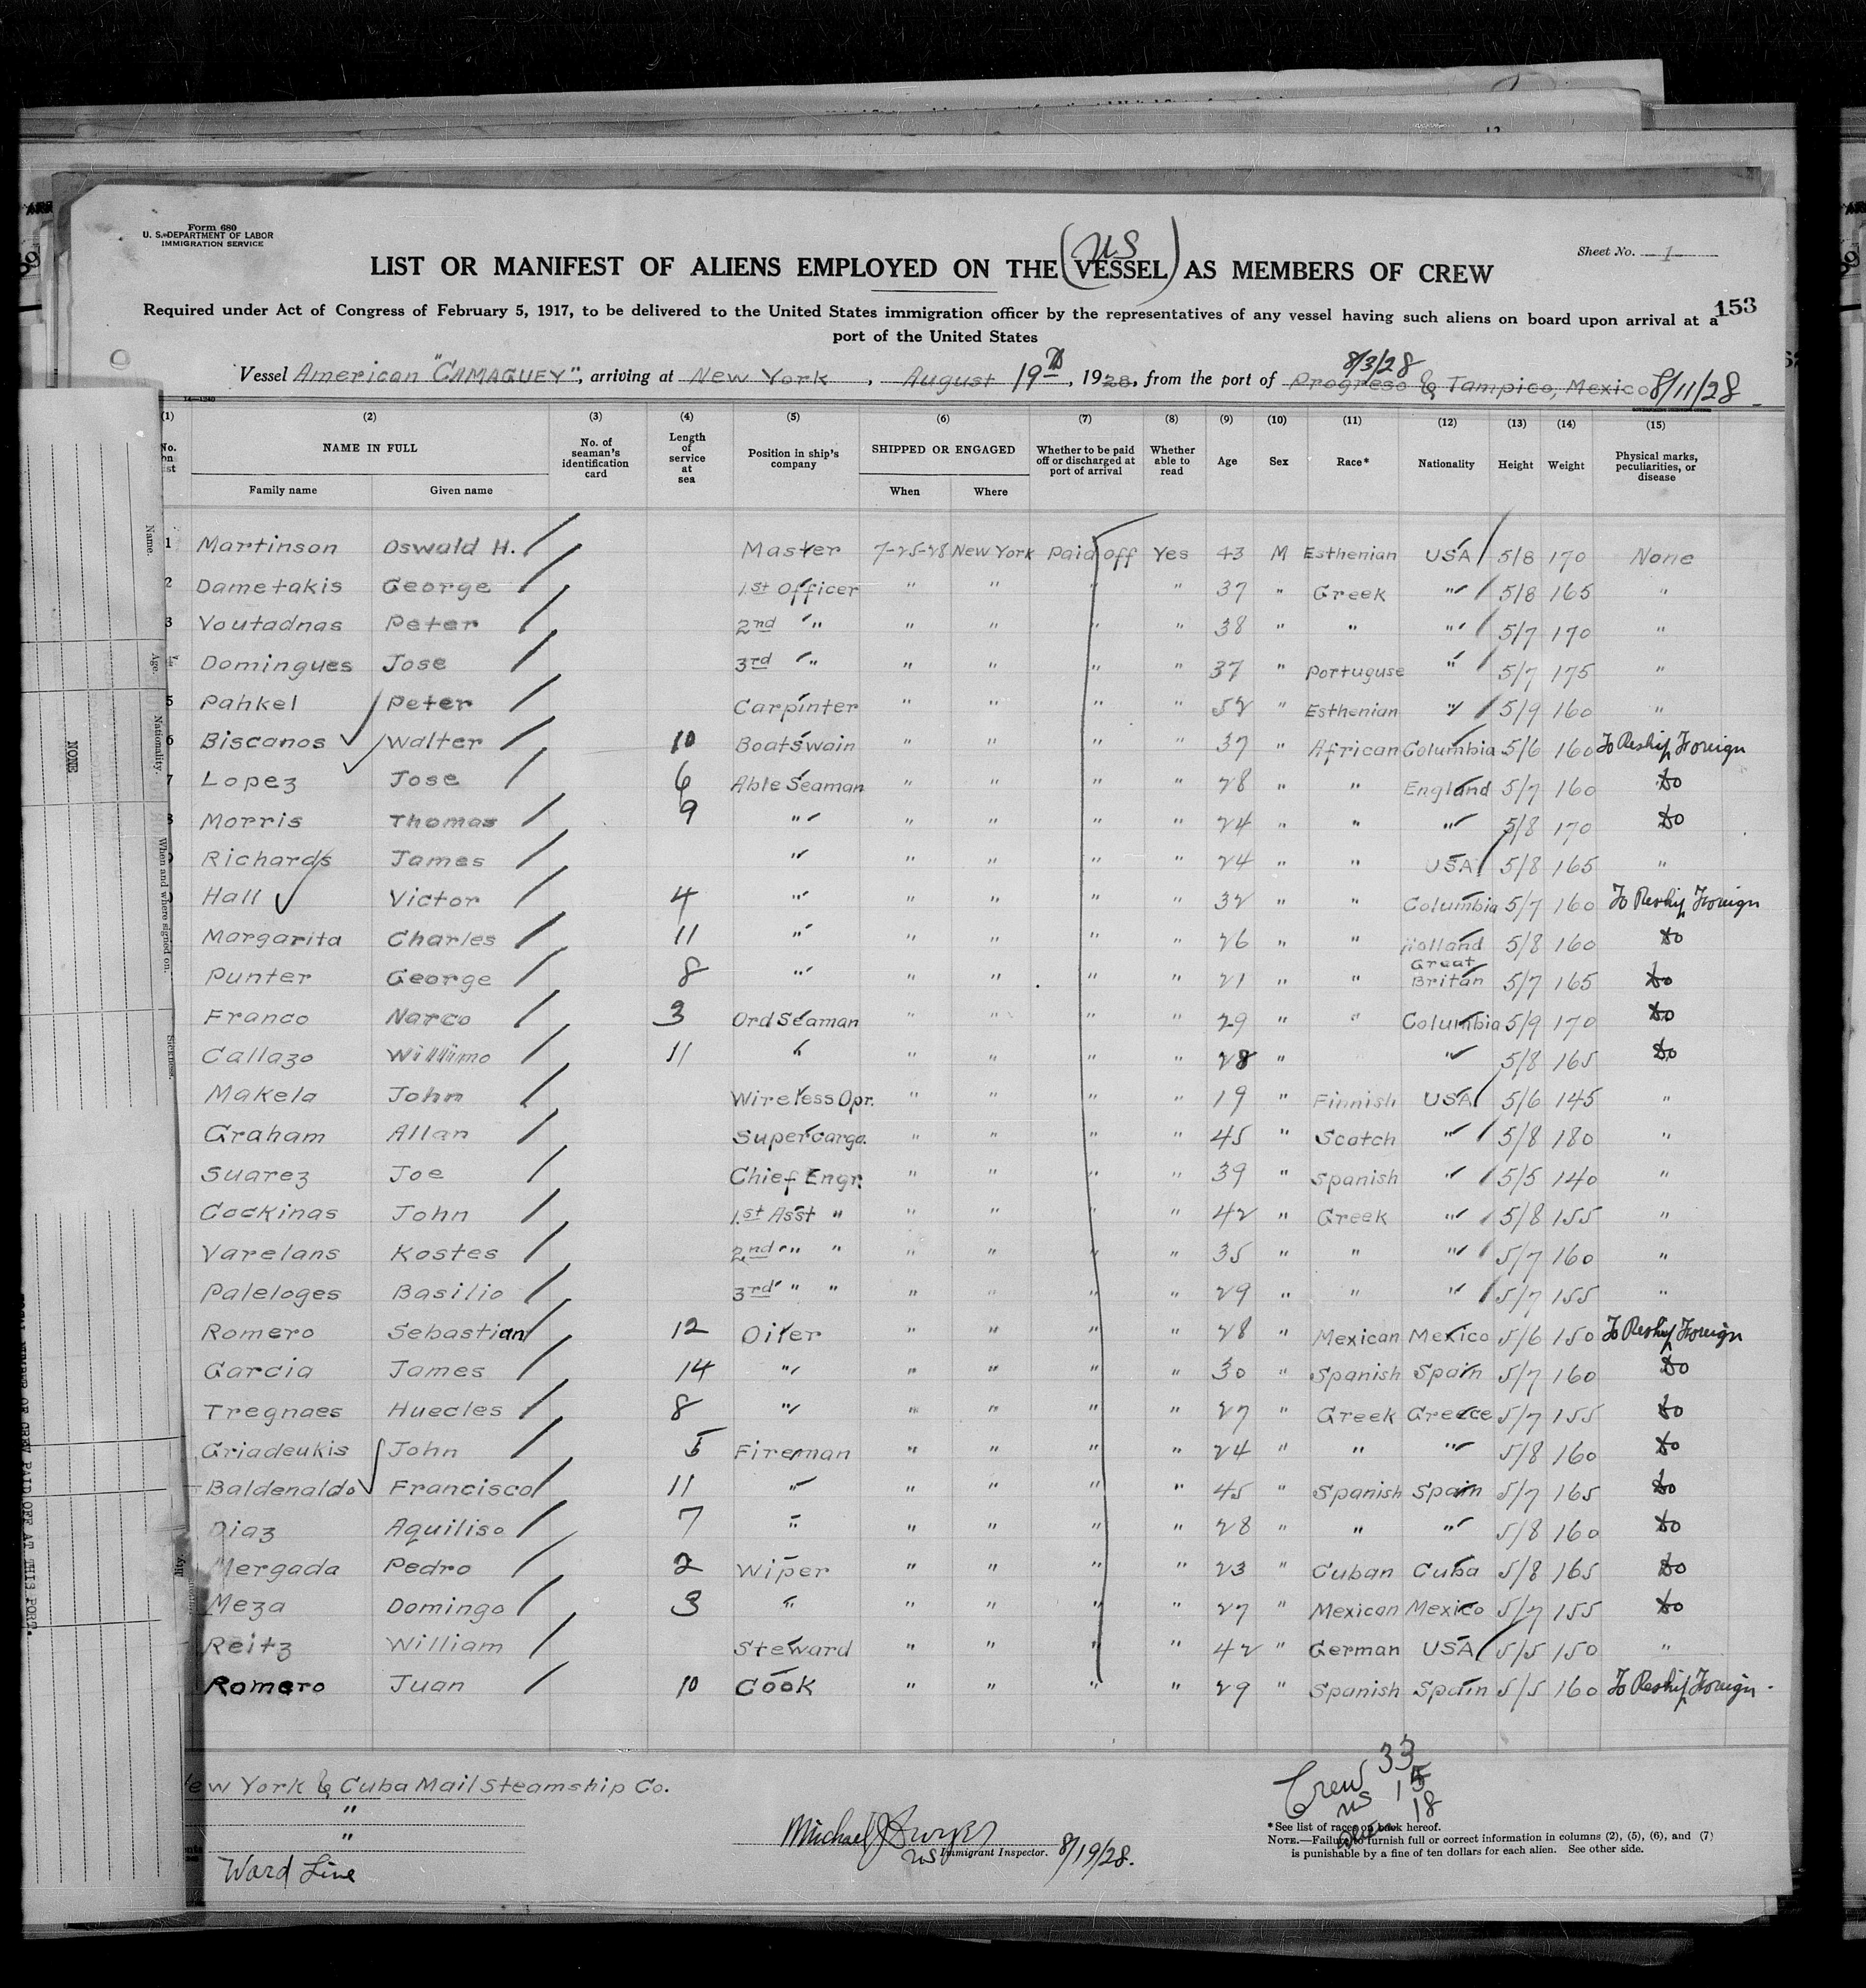 Form 680
U. S. DEPARTMENT OF LABOR
IMMIGRATION SERVICE
Sheet No. 1
US
LIST OR MANIFEST OF ALIENS EMPLOYED ON THE (VESSEL) AS MEMBERS OF CREW
153
Required under Act of Congress of February 5, 1917, to be delivered to the United States immigration officer by the representatives of any vessel having such aliens on board upon arrival at a
port of the United States
8/3/28
Vessel American "CAMAGUEY", arriving at New York, August 19th, 1928, from the port of Progreso & Tampico, Mexico 8/11/28
(1) (2) (3) (4) (5) (6) (7) (8) (9) (10) (11) (12) (13) (14) (15)
No. NAME IN FULL No. of seaman's identification card Length of service at sea Position in ship's company SHIPPED OR ENGAGED Whether to be paid off or discharged at port of arrival Whether able to read Age Sex Race* Nationality Height Weight Physical marks, peculiarities, or disease
Family name Given name When Where
1 Martinson Oswald H. Master 7-25-28 New York Paid off Yes 43 M Esthenian USA 5/8 170 None
2 Dametakis George 1st Officer " " " " 37 " Greek " 5/8 165 "
3 Voutadnas Peter 2nd " " " " " 38 " " " 5/7 170 "
Domingues Jose 3rd " " " " " 37 " Portuguse " 5/7 175 "
5 Pahkel Peter Carpinter " " " " 52 " Esthenian " 5/9 160 "
6 Biscanos Walter 10 Boatswain " " " " 37 " African Columbia 5/6 160 To Reship Foreign
7 Lopez Jose 6 Able Seaman " " " " 28 " " England 5/7 160 do
Morris Thomas 9 " " " " " 24 " " " 5/8 170 do
Richards James " " " " " 24 " " USA 5/8 165 "
Hall Victor 4 " " " " " 32 " " Columbia 5/7 160 To Reship Foreign
Margarita Charles 11 " " " " " 26 " " Holland 5/8 160 do
Punter George 8 " " " " " 21 " " Great Britan 5/7 165 do
Franco Narco 3 Ord Seaman " " " " 29 " " Columbia 5/9 170 do
Callazo 11 " " " " " 28 " " 5/8 165 do
Makela John Wireless Opr. " " " " 19 " Finnish USA 5/6 145 "
Graham Allan Supercargo " " " " 45 " Scotch " 5/8 180 "
Suarez Joe Chief Engr. " " " " 39 " Spanish " 5/5 140 "
Cockinas John 1st Asst " " " " " 42 " Greek " 5/8 155 "
Varelans Kostes 2nd " " " " " " 35 " " " 5/7 160 "
Paleloges Basilio 3rd " " " " " " 29 " " " 5/7 155 "
Romero Sebastian 12 Oiler " " " " 28 " Mexican Mexico 5/6 150 To Reship Foreign
Garcia James 14 " " " " " 30 " Spanish Spain 5/7 160 do
Tregnaes Huecles 8 " " " " " 27 " Greek Greece 5/7 155 do
Griadeukis John 5 Fireman " " " " 24 " " " 5/8 160 do
Baldenaldo Francisco 11 " " " " " 45 " Spanish Spain 5/7 165 do
Diaz Aquiliso 7 " " " " " 28 " " " 5/8 160 do
Mergada Pedro 2 Wiper " " " " 23 " Cuban Cuba 5/8 165 do
Meza Domingo 3 " " " " " 27 " Mexican Mexico 5/7 155 do
Reitz William Steward " " " " 42 " German USA 5/5 150 "
Romero Juan 10 Cook " " " " 29 " Spanish Spain 5/5 160 To Reship Foreign
New York & Cuba Mail Steamship Co.
"
"
Ward Line
Michael J Dwyer
US Immigrant Inspector. 8/19/28.
Crew 33
US 15
18
*See list of races on back hereof.
NOTE.—Failure to furnish full or correct information in columns (2), (5), (6), and (7)
is punishable by a fine of ten dollars for each alien. See other side.
Name
Age.
Nationality.
When and where signed on.
Sickness.
NONE